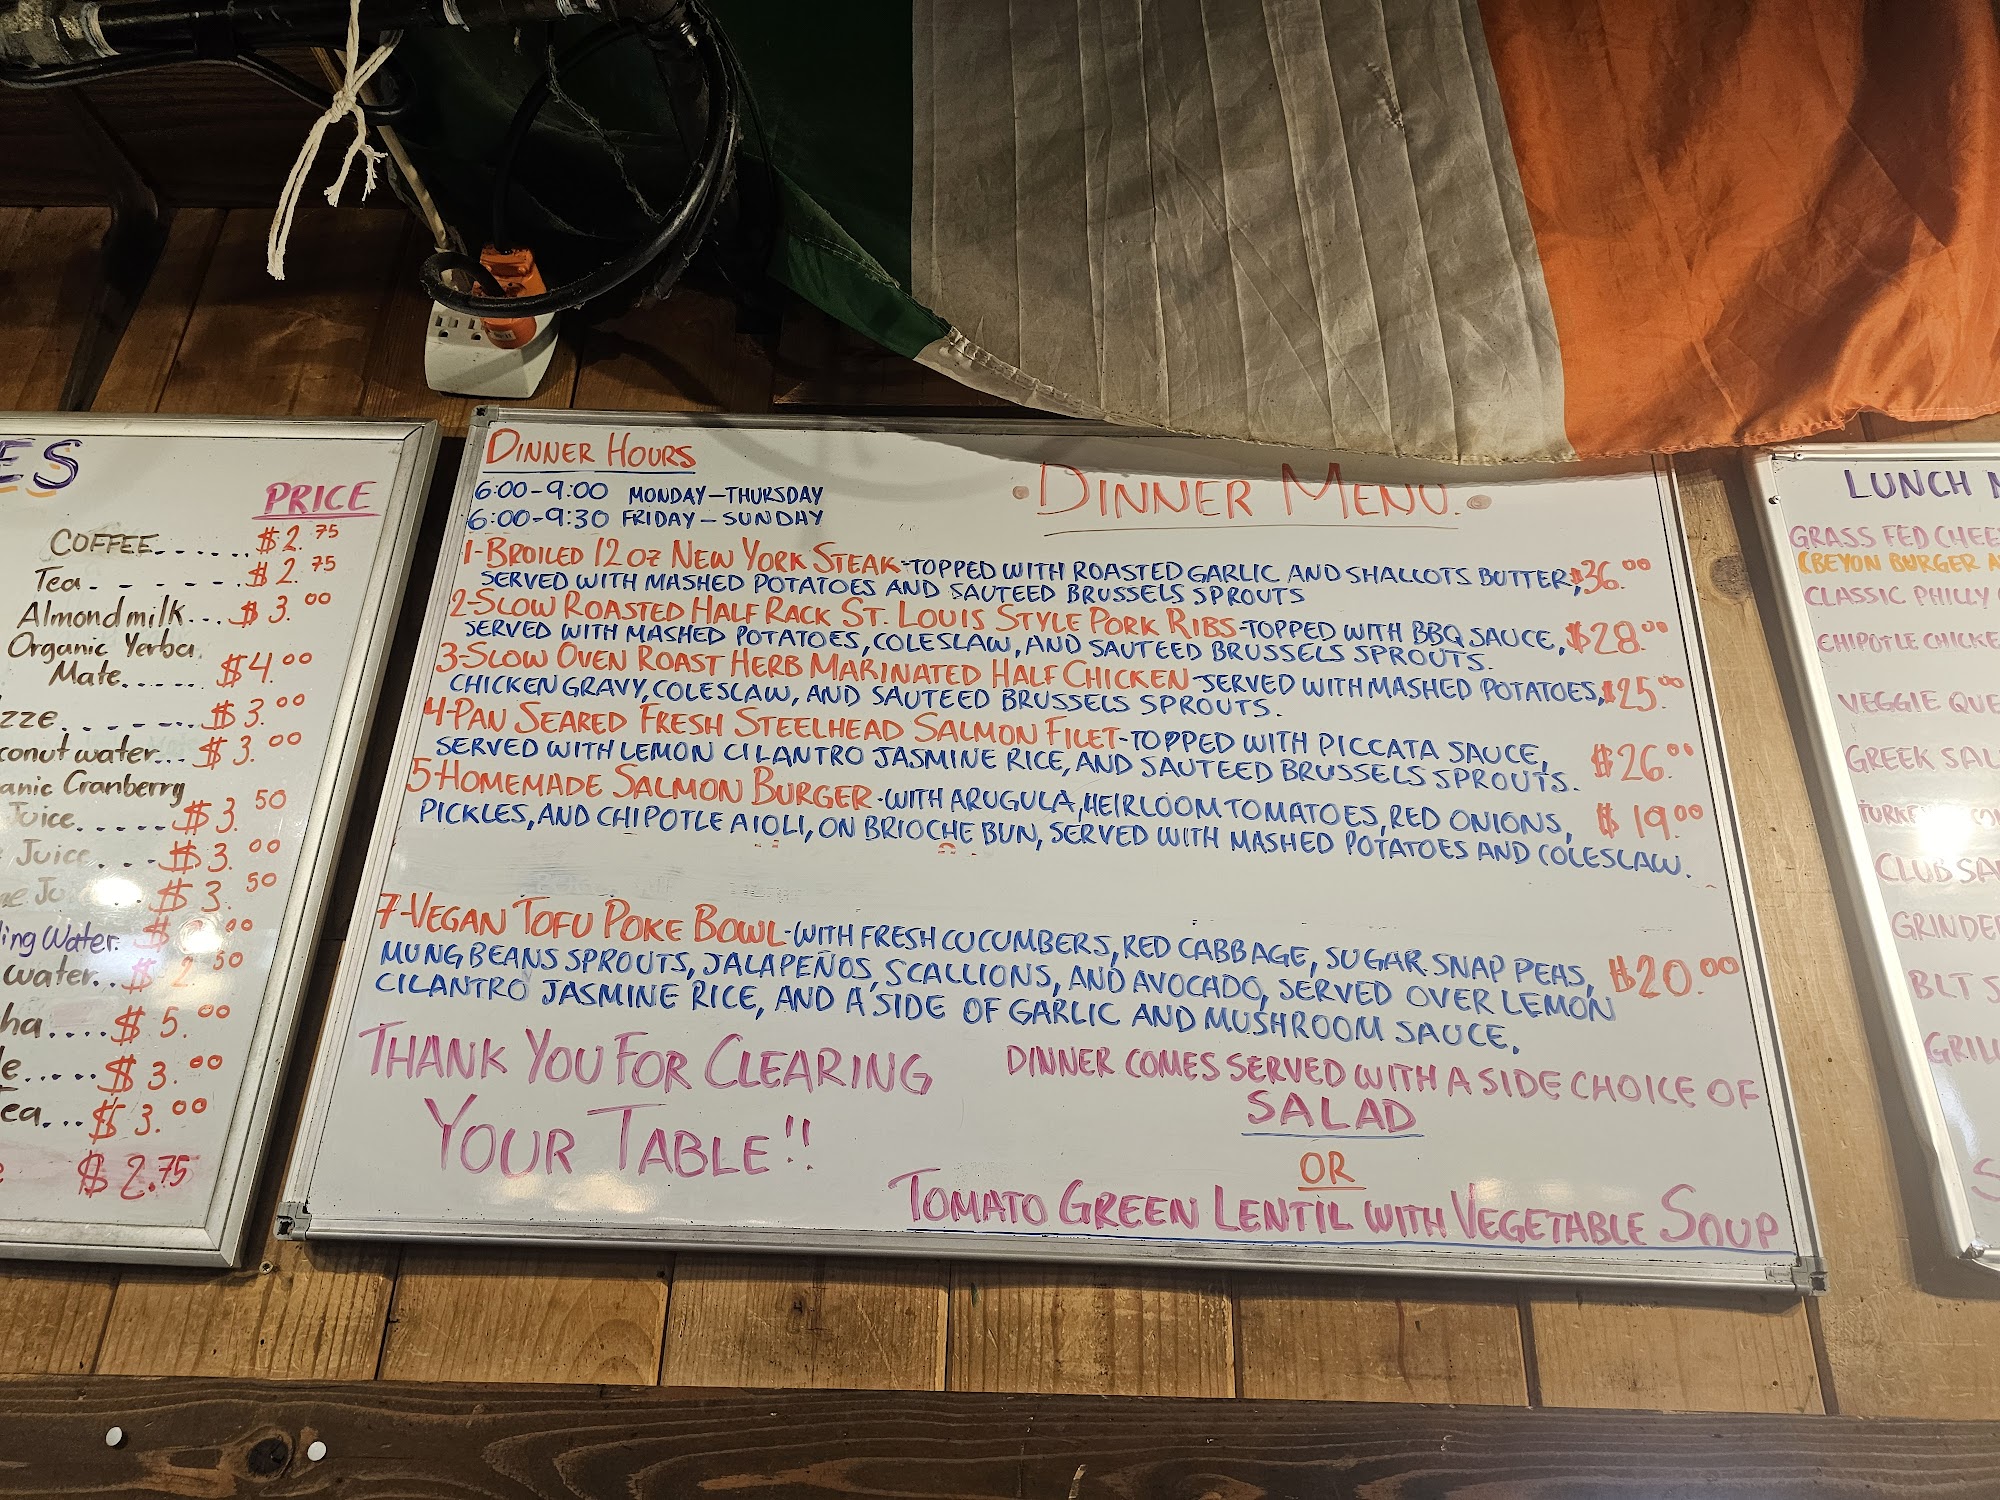 ES
PRICE
COFFEE...... $2.75
Tea. - - - - - . $2.75
Almondmilk... $3.00
Organic Yerba
Mate...... $4.00
zze. - - - - ... $3.00
conut water... $3.00
anic Cranberry
Juice...... $3.50
Juice. . - . $3.00
$3.50
ling Water.
water.. $2.50
ha.... $5.00
le..... $3.00
ea... $3.00
$2.75
DINNER HOURS
6:00-9:00 MONDAY-THURSDAY
6:00-9:30 FRIDAY-SUNDAY
·DINNER MENU.·
1-BROILED 12 oz NEW YORK STEAK-TOPPED WITH ROASTED GARLIC AND SHALLOTS BUTTER, $36.00
SERVED WITH MASHED POTATOES AND SAUTEED BRUSSELS SPROUTS
2-SLOW ROASTED HALF RACK ST. LOUIS STYLE PORK RIBS-TOPPED WITH BBQ SAUCE, $28.00
SERVED WITH MASHED POTATOES, COLESLAW, AND SAUTEED BRUSSELS SPROUTS.
3-SLOW OVEN ROAST HERB MARINATED HALF CHICKEN-SERVED WITH MASHED POTATOES, $25.00
CHICKEN GRAVY, COLESLAW, AND SAUTEED BRUSSELS SPROUTS.
4-PAN SEARED FRESH STEELHEAD SALMON FILET-TOPPED WITH PICCATA SAUCE, $26.00
SERVED WITH LEMON CILANTRO JASMINE RICE, AND SAUTEED BRUSSELS SPROUTS.
5-HOMEMADE SALMON BURGER-WITH ARUGULA, HEIRLOOM TOMATOES, RED ONIONS, $19.00
PICKLES, AND CHIPOTLE AIOLI, ON BRIOCHE BUN, SERVED WITH MASHED POTATOES AND COLESLAW.
7-VEGAN TOFU POKE BOWL-WITH FRESH CUCUMBERS, RED CABBAGE, SUGAR SNAP PEAS, $20.00
MUNG BEANS SPROUTS, JALAPEÑOS, SCALLIONS, AND AVOCADO, SERVED OVER LEMON
CILANTRO JASMINE RICE, AND A SIDE OF GARLIC AND MUSHROOM SAUCE.
THANK YOU FOR CLEARING
YOUR TABLE!!
DINNER COMES SERVED WITH A SIDE CHOICE OF
SALAD
OR
TOMATO GREEN LENTIL WITH VEGETABLE SOUP
LUNCH M
GRASS FED CHEE
(BEYON BURGER A
CLASSIC PHILLY
CHIPOTLE CHICKE
VEGGIE QUE
GREEK SAL
CLUB SA
GRINDE
BLT S
GRIL